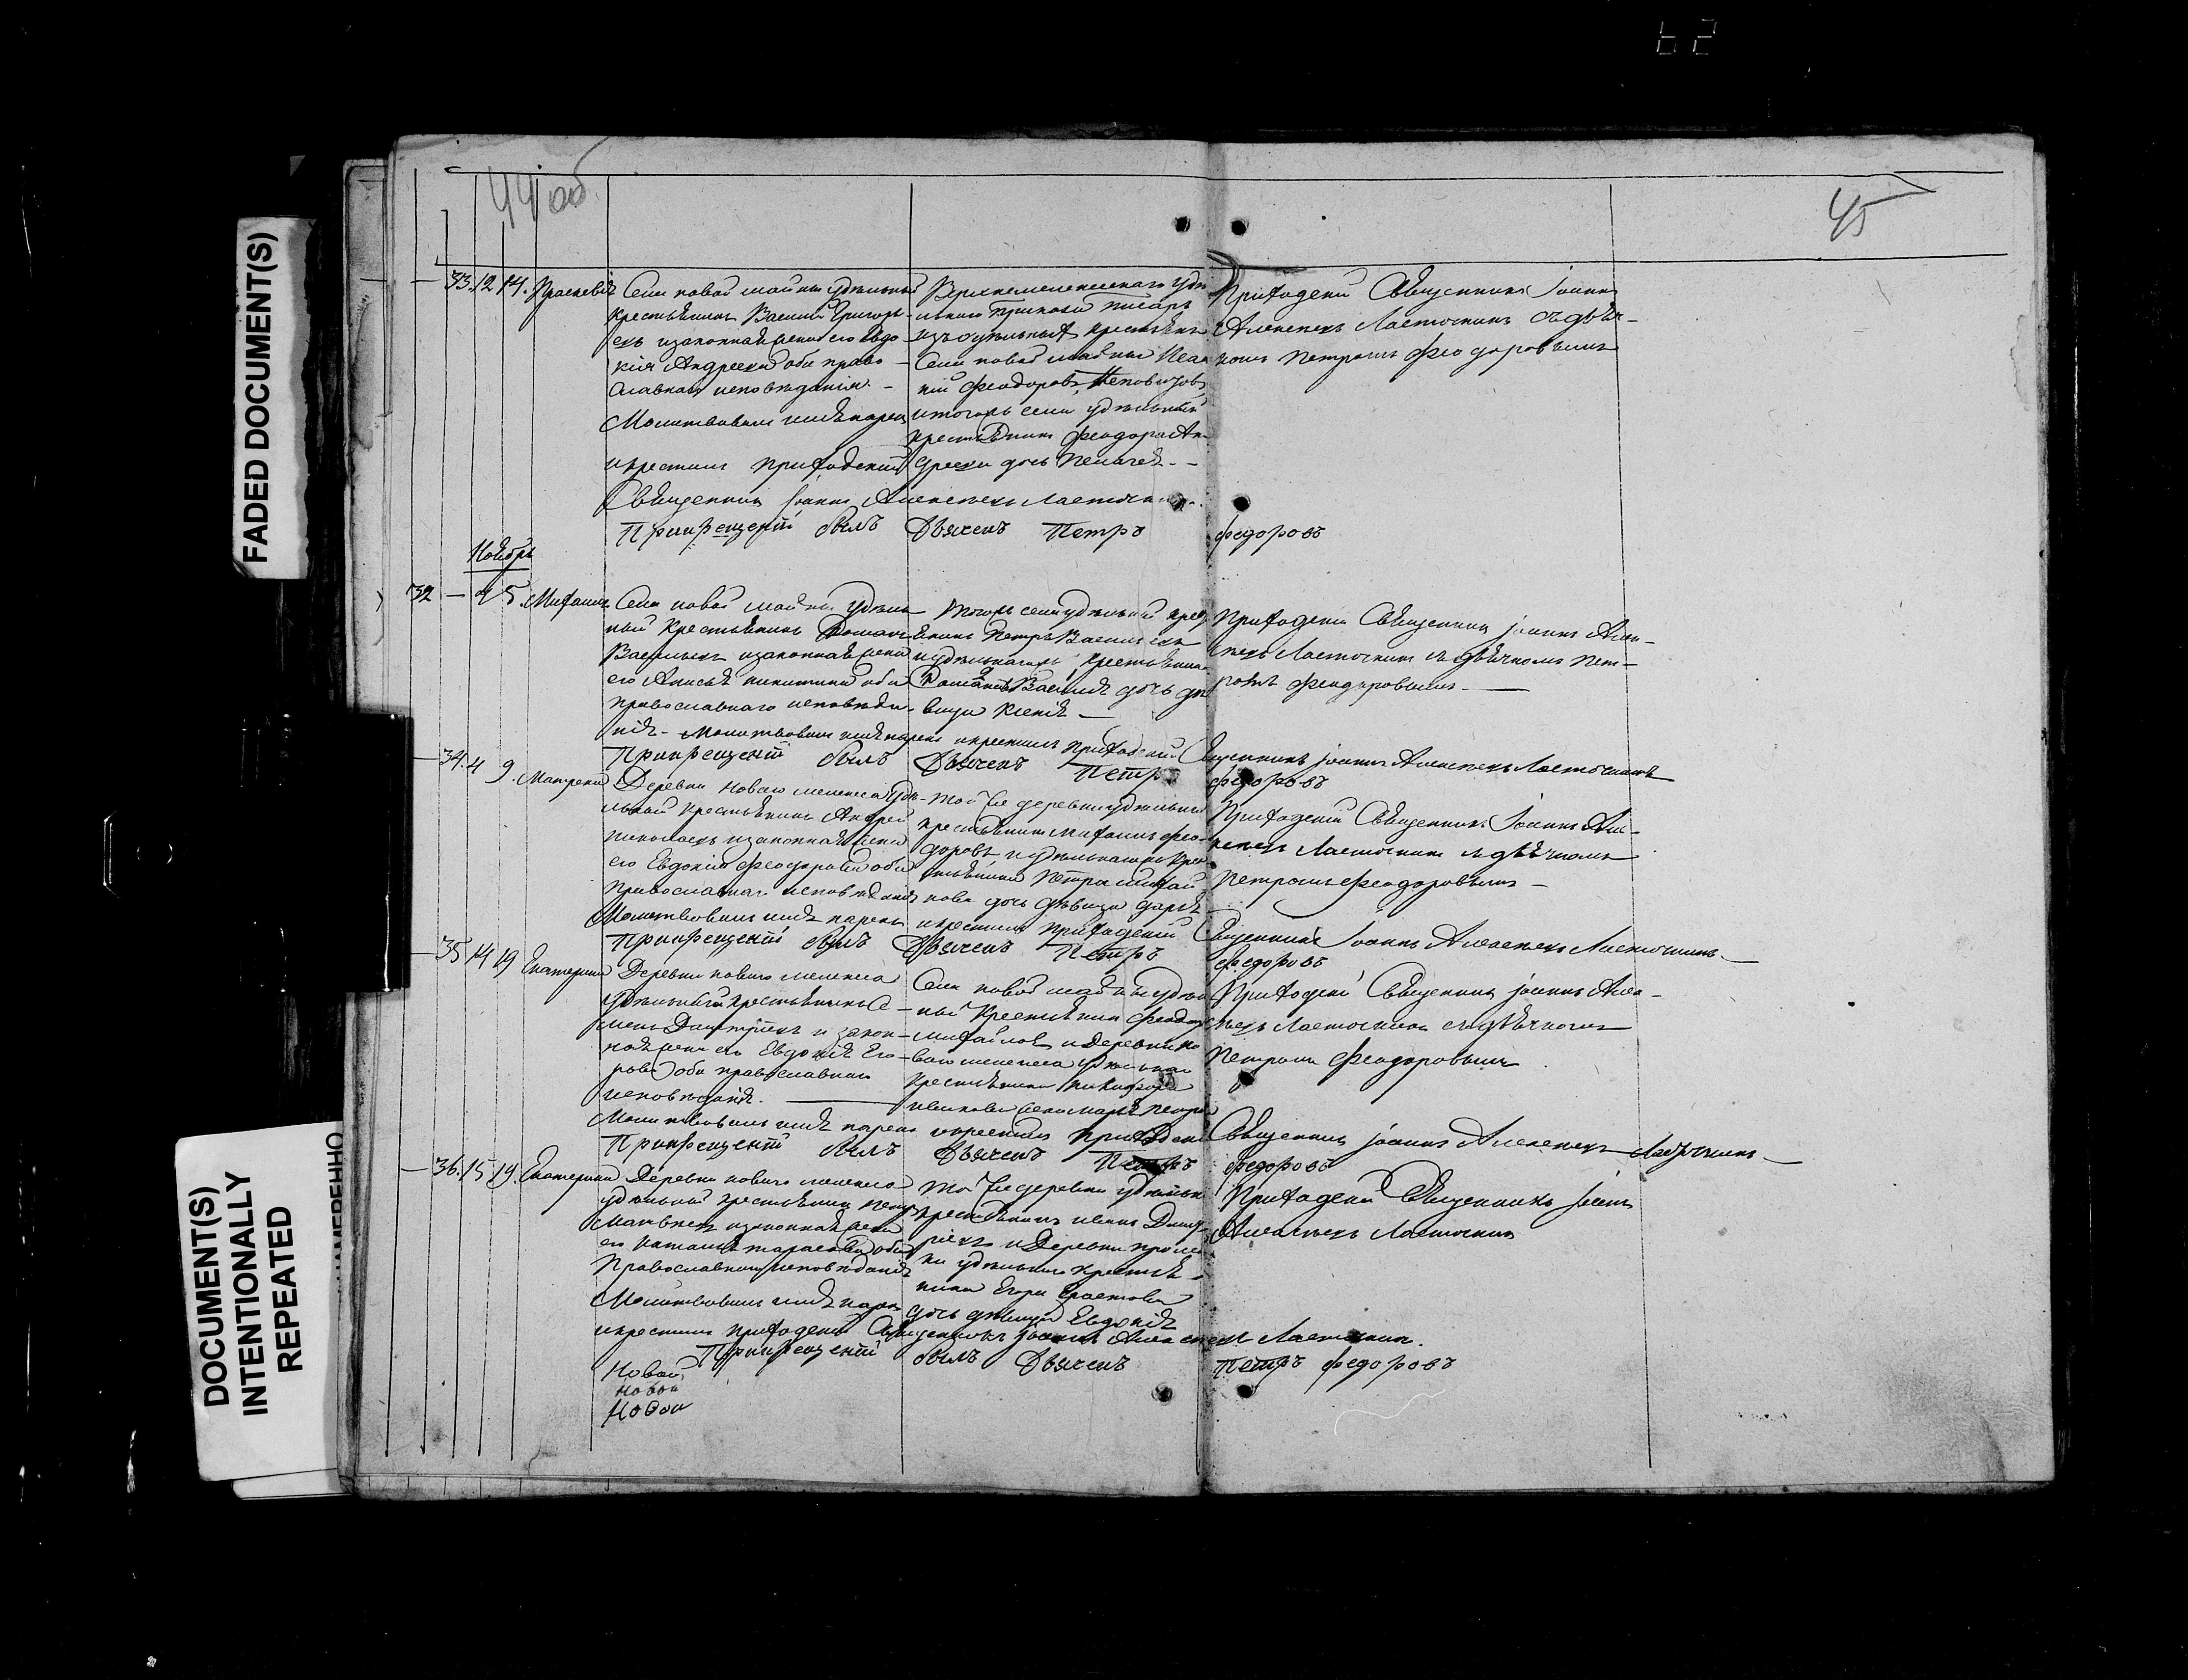 62
FADED DOCUMENT(S)
DOCUMENT(S)
INTENTIONALLY
REPEATED
44 об.
45
33. 12 14. Праскевія
Села новой майны удѣльный
крестьянинъ Василій Григорь-
евъ и законная жена его Евдо-
кія Андреева оба право-
славнаго исповѣданія -
Молитвовалъ имя нарекъ
и крестилъ приходскій
Священникъ Іоаннъ Алексѣевъ Ласточкинъ.
При крещеніи былъ Дьяченъ Петръ Федоровъ
Верхнемелекескаго удѣ
льнаго приказа писарь
изъ удѣльныхъ крестьянъ
Села новой майны
Феодоровъ
и тогожъ села удѣльный
крестьянина Феодора Ан-
дреева дочь Пелагея. -
Приходскій Священникъ Іоаннъ
Алексѣевъ Ласточкинъ съ дьяч-
комъ Петромъ Феодоровымъ
Ноябрь
32 — 4 5. Михаилъ
Села новой майны удѣль
ный крестьянинъ Романъ
Васильевъ и законная жена
его Анисья Никитина оба
православнаго исповѣда-
нія - Молитвовалъ имя нарекъ и крестилъ приходскій Священникъ Іоаннъ Алексѣевъ Ласточкинъ
При крещеніи былъ Дьяченъ Петръ Федоровъ
Тогожъ села удѣльный крес
янинъ Петръ Васильевъ
и удѣльнагожъ крестьянина
Романа Васильева дочь дѣ
вица Ксенія —
Приходскій Священникъ Іоаннъ Алек-
сѣевъ Ласточкинъ съ дьячкомъ Пет-
ромъ Феодоровымъ. —
34. 4 9. Матрена
Деревни Новаго мелекеса удѣ-
льный крестьянинъ Андрей
Николаевъ и законная жена
его Евдокія Феодорова оба
православнаго исповѣданія
Молитвовалъ имя нарекъ и крестилъ приходскій Священникъ Іоаннъ Алексѣевъ Ласточкинъ. —
При крещеніи былъ Дьяченъ Петръ Федоровъ
Той же деревни удѣльный
крестьянинъ Михаилъ Фео-
доровъ и удѣльнагожъ крес
тьянина Петра Михай
лова дочь дѣвица Дарья
Приходскій Священникъ Іоаннъ Але-
ксѣевъ Ласточкинъ съ дьячкомъ
Петромъ Феодоровымъ —
35 14 19 Екатерина
Деревни новаго мелекеса
удѣльный крестьянинъ Се-
менъ Дмитріевъ и закон-
ная жена его Евдокія Его-
рова оба православнаго
исповѣданія. —
Молитвовалъ имя нарекъ и крестилъ приходскій Священникъ Іоаннъ Алексѣевъ Ласточкинъ —
При крещеніи былъ Дьяченъ Петръ Федоровъ
Села новой майны удѣль
ный крестьянинъ Феодоръ
Михайловъ и деревни но
ваго мелекеса удѣльнаго
крестьянина Никифора
Иванова жена Марья Петро
Приходскій Священникъ Іоаннъ Але-
ксѣевъ Ласточкинъ съ дьячкомъ
Петромъ Феодоровымъ
36. 15 19. Екатерина
Деревни новаго мелекеса
удѣльный крестьянинъ Петръ
Матвѣевъ и законная жена
его Наталья Тарасова оба
православнаго исповѣданія
Молитвовалъ имя нарекъ
и крестилъ приходскій Священникъ Іоаннъ Алексѣевъ Ласточкинъ.
При крещеніи былъ Дьяченъ Петръ Федоровъ
Той же деревни удѣльный
крестьянинъ Иванъ Дмит
ріевъ и деревни
удѣльнаго крестья-
нина Егора
дочь дѣвица Евдокія
Приходскій Священникъ Іоаннъ
Алексѣевъ Ласточкинъ
Новой
Новой
Новой